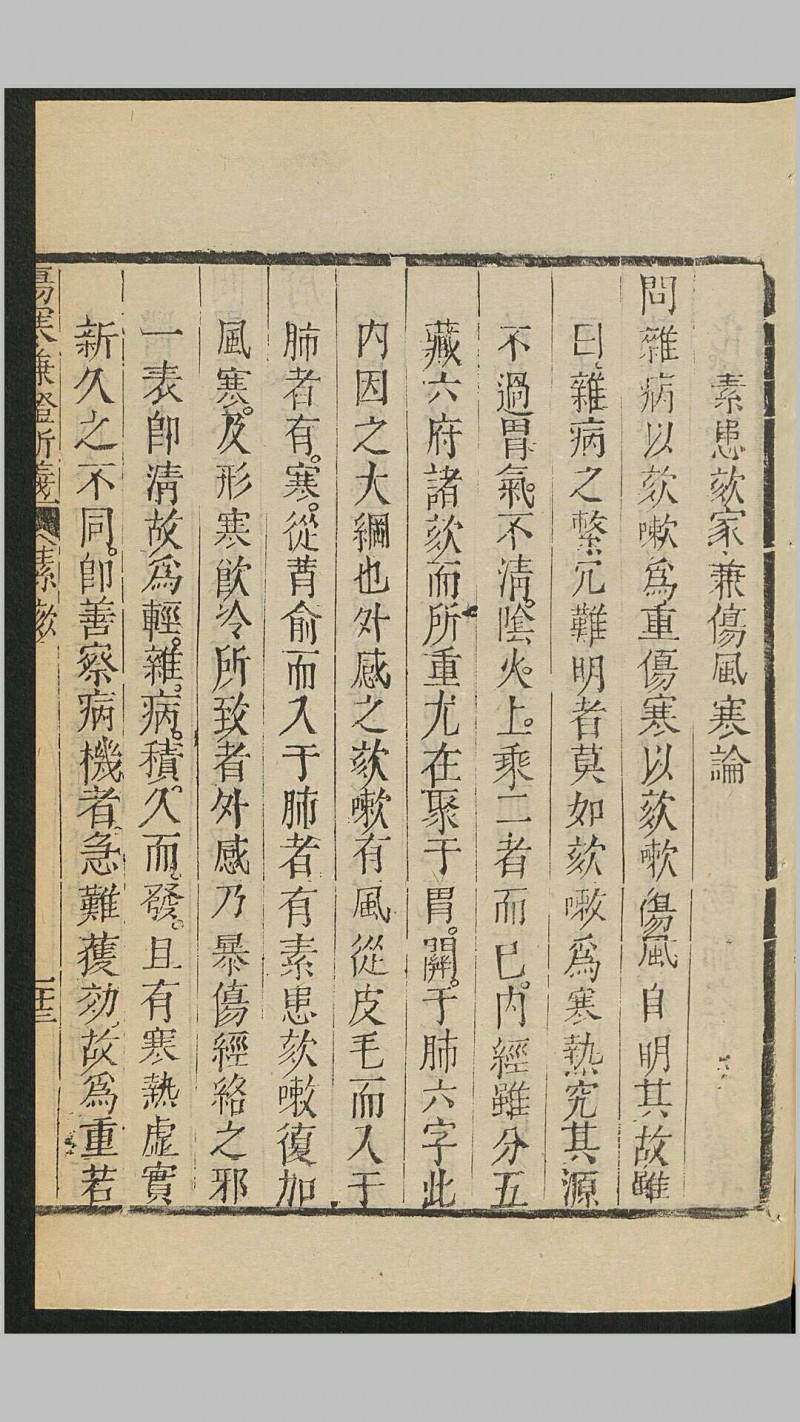 素患欬家兼傷風寒論
問雜病以欬嗽爲重傷寒以欬嗽傷風自明其故雖
曰雜病之繁冗難明者莫如欬嗽爲寒熱究其源
不過胃氣不清陰火上乘二者而已内經雖分五
藏六府諸欬而所重尤在聚于胃關于肺六字此
内因之大綱也外感之欬嗽有風從皮毛而入于
肺者有寒從背俞而入于肺者有素患欬嗽復加
風寒及形寒飲冷所致者外感乃暴傷經絡之邪
一表即清故爲輕雜病積久而發且有寒熱虛實
新久之不同即善察病機者急難獲効故爲重若
傷寒兼證析義 素欬